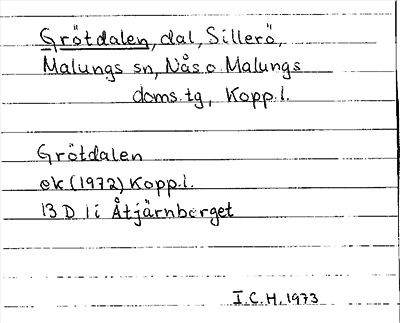 Grötdalen, dal, Sillerö,
Malungs sn, Nås o. Malungs
doms.tg, Kopp.l.
Grötdalen
ek (1972) Kopp.l.
13 D 1 i Åtjärnberget
I.C.H. 1973